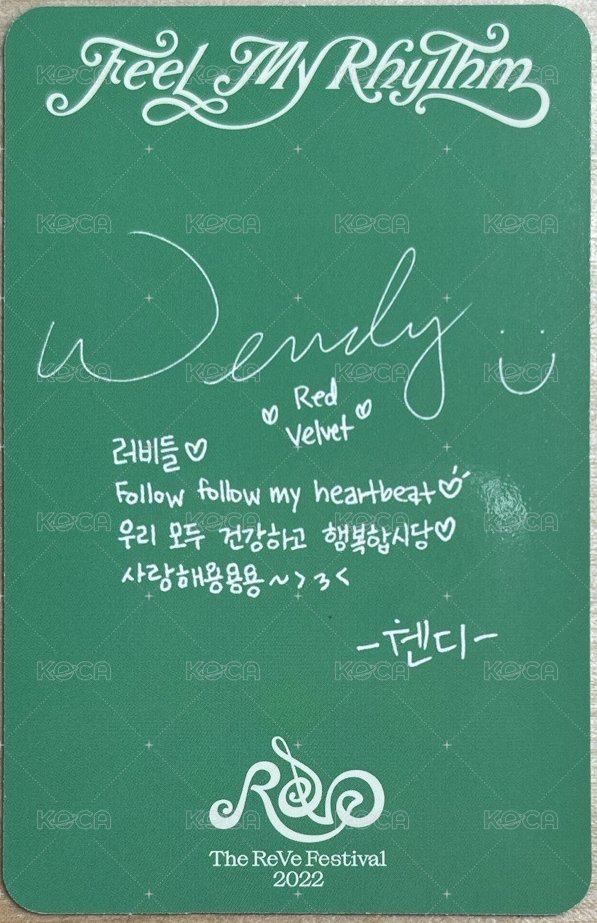 Feel My Rhythm
Wendy
Red
Velvet
러비들♡
Follow follow my heartbeat♡
우리 모두 건강하고 행복합시당♡
사랑해용용용~>3<
-웬디-
ReVe
The ReVe Festival
2022
KOCA